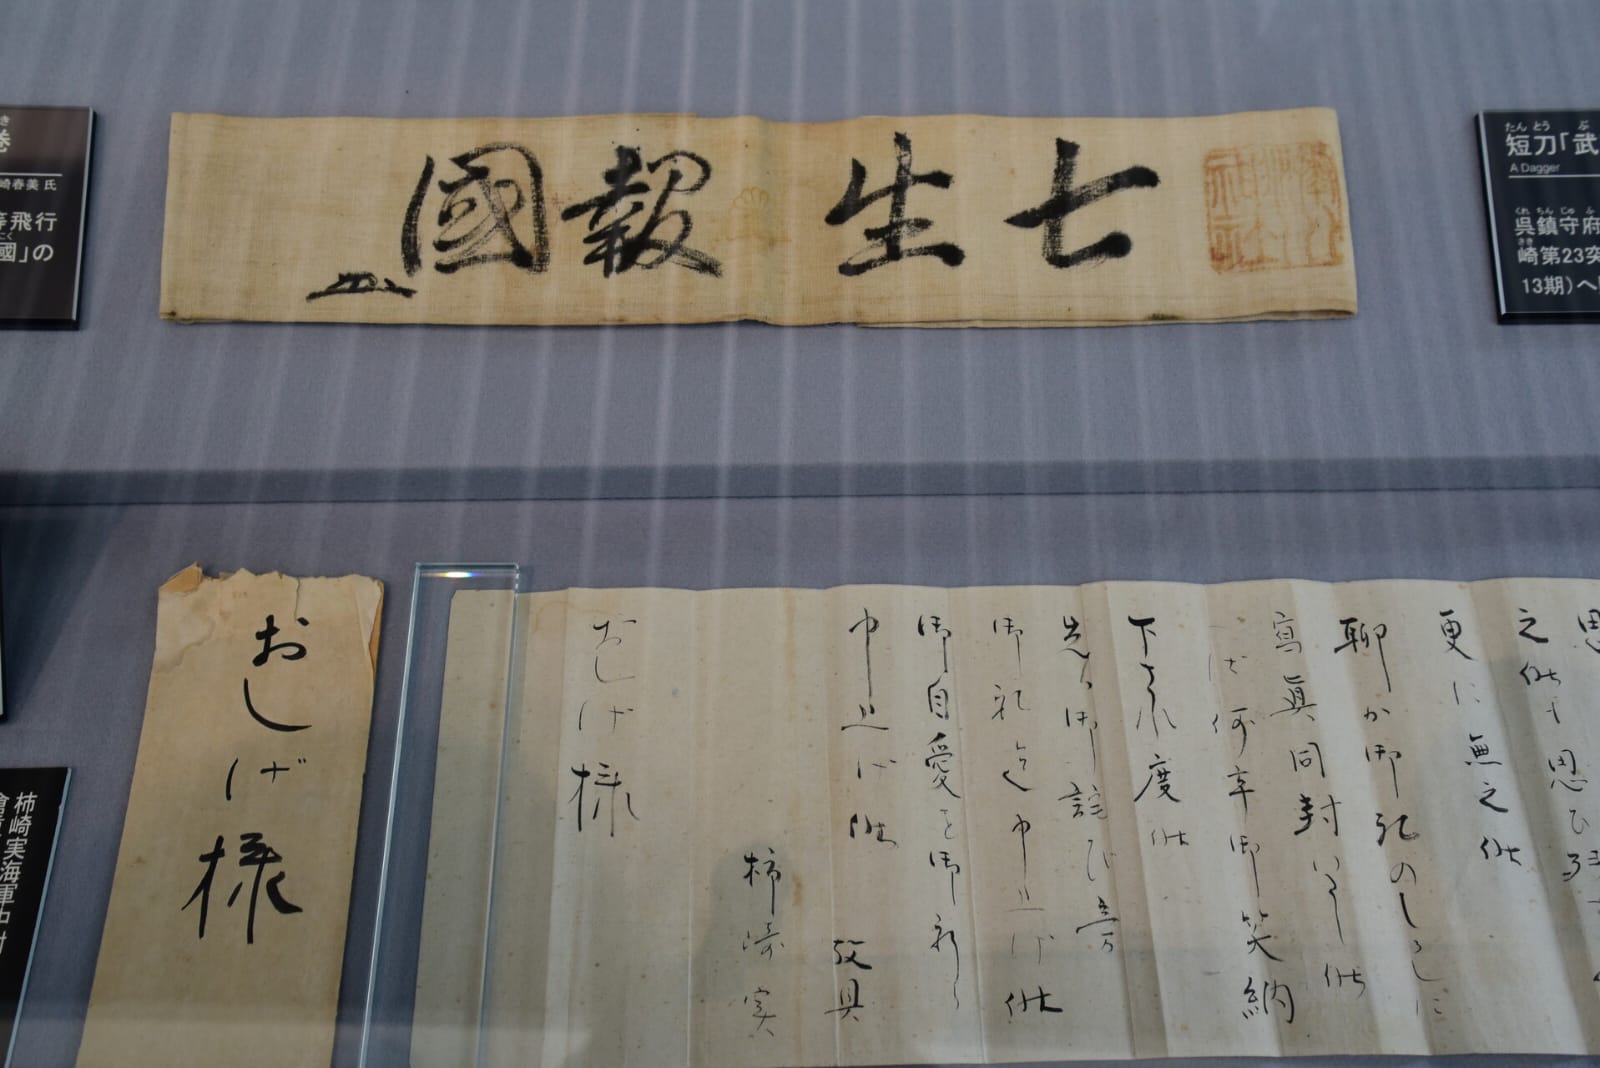 七生報國
巻
き
崎春美 氏
等飛行
國」の
たん とう ぶ
短刀「武
A Dagger
くれ ちん じゅ ふ
呉鎮守府
さき
崎第23突
13期)へ
おしげ様
更に無之候
聊か御礼のしるしに
寫眞同封いたし候
何卒御笑納
下され度候
先は御詫び旁
御礼迄申上げ候
御自愛を御祈り
申上げ候 敬具
柿崎実
おしげ様
柿崎実海軍中尉